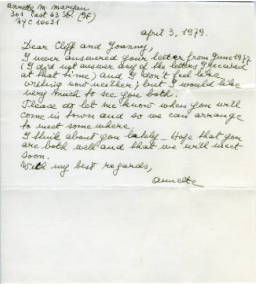 Annette M. Maryan
301 East 63 St. (9F)
NYC 10021
April 3, 1979.
Dear Cliff and Yoanny,
I never answered your letter from June 1977
(I did not answer any of the letters I received
at that time) and I don't feel like
writing now neither; but I would like
very much to see you both.
Please do let me know when you will
come in town and so we can arrange
to meet some where.
I think about you lately - Hope that you
are both well and that we will meet
soon.
With my best regards,
Annette